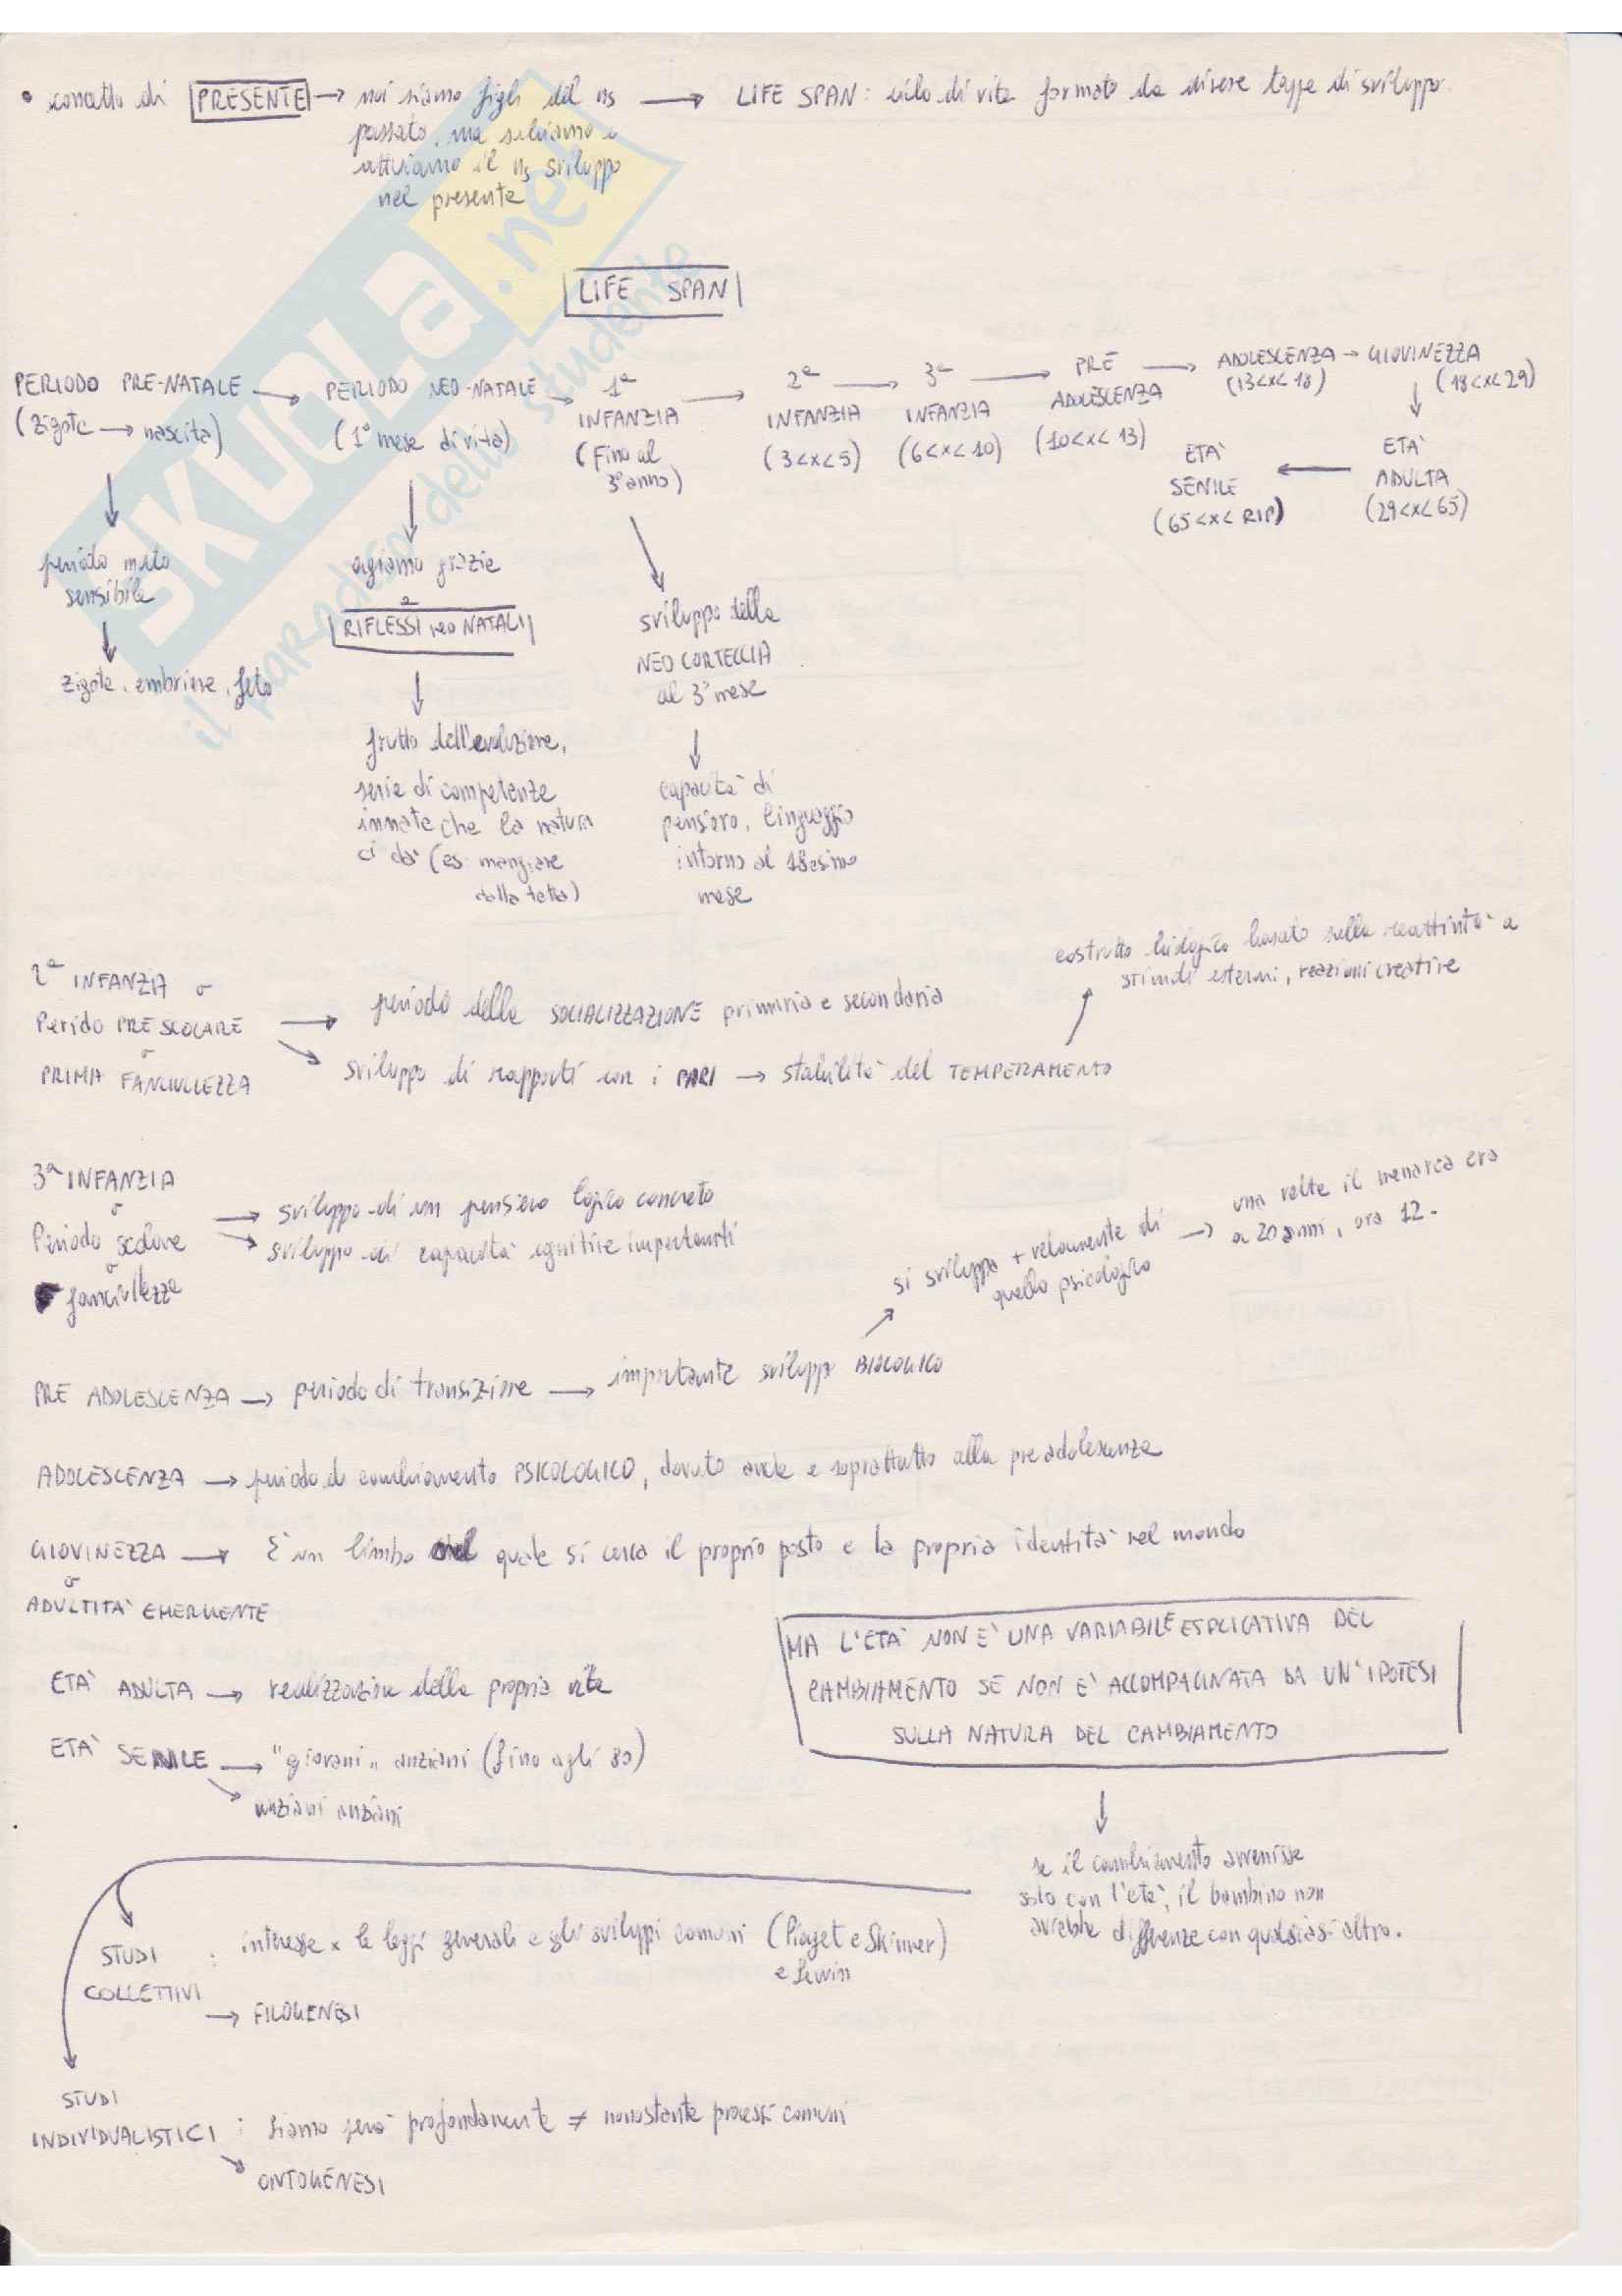 • concetto di PRESENTE → noi siamo figli del ns → LIFE SPAN: ciclo di vita formato da diverse tappe di sviluppo.
passato, ma
attiviamo il ns sviluppo
nel presente
LIFE SPAN
PERIODO PRE-NATALE → PERIODO NEO-NATALE → 1ª → 2ª → 3ª → PRE → ADOLESCENZA → GIOVINEZZA
INFANZIA INFANZIA INFANZIA ADOLESCENZA (13<x<18) (18<x<29)
(zigote → nascita) (1° mese di vita) (Fino al (3<x<5) (6<x<10) (10<x<13)
3° anno)
ETÀ ← ETÀ
SENILE ADULTA
(65<x<RIP) (29<x<65)
periodo molto
sensibile
zigote, embrione, feto
agiamo grazie
a
RIFLESSI neo NATALI
frutto dell'evoluzione,
serie di competenze
innate che la natura
ci dà (es. mangiare
dalla tetta)
sviluppo della
NEO CORTECCIA
al 3° mese
capacità di
pensiero, linguaggio
intorno al 18esimo
mese
2ª INFANZIA o
Perido PRE SCOLARE
o
PRIMA FANCIULLEZZA
→ periodo della SOCIALIZZAZIONE primaria e secondaria
sviluppo di rapporti con i PARI → stabilità del TEMPERAMENTO
costrutto biologico basato sulla reattività a
stimoli esterni, reazioni creative
3ª INFANZIA
o
Periodo scolare
o
fanciullezza
→ sviluppo di un pensiero logico concreto
→ sviluppo di capacità cognitive importanti
PRE ADOLESCENZA → periodo di transizione → importante sviluppo BIOLOGICO
si sviluppa + velocemente di → una volta il menarca era
quello psicologico a 20 anni, ora 12.
ADOLESCENZA → periodo di cambiamento PSICOLOGICO, dovuto anche e soprattutto alla preadolescenza
GIOVINEZZA → È un limbo nel quale si cerca il proprio posto e la propria identità nel mondo
o
ADULTITÀ EMERGENTE
ETÀ ADULTA → realizzazione della propria vita
ETÀ SENILE → "giovani" anziani (fino agli 80)
anziani anziani
MA L'ETÀ NON È UNA VARIABILE ESPLICATIVA DEL
CAMBIAMENTO SE NON È ACCOMPAGNATA DA UN'IPOTESI
SULLA NATURA DEL CAMBIAMENTO
se il cambiamento avvenisse
solo con l'età, il bambino non
avrebbe differenze con qualsiasi altro.
STUDI
COLLETTIVI : interesse x le leggi generali e gli sviluppi comuni (Piaget e Skinner)
e Lewin
→ FILOGENESI
STUDI
INDIVIDUALISTICI : siamo però profondamente ≠ nonostante processi comuni
ONTOGENESI
SKUOLa.net
il paradiso dello studente